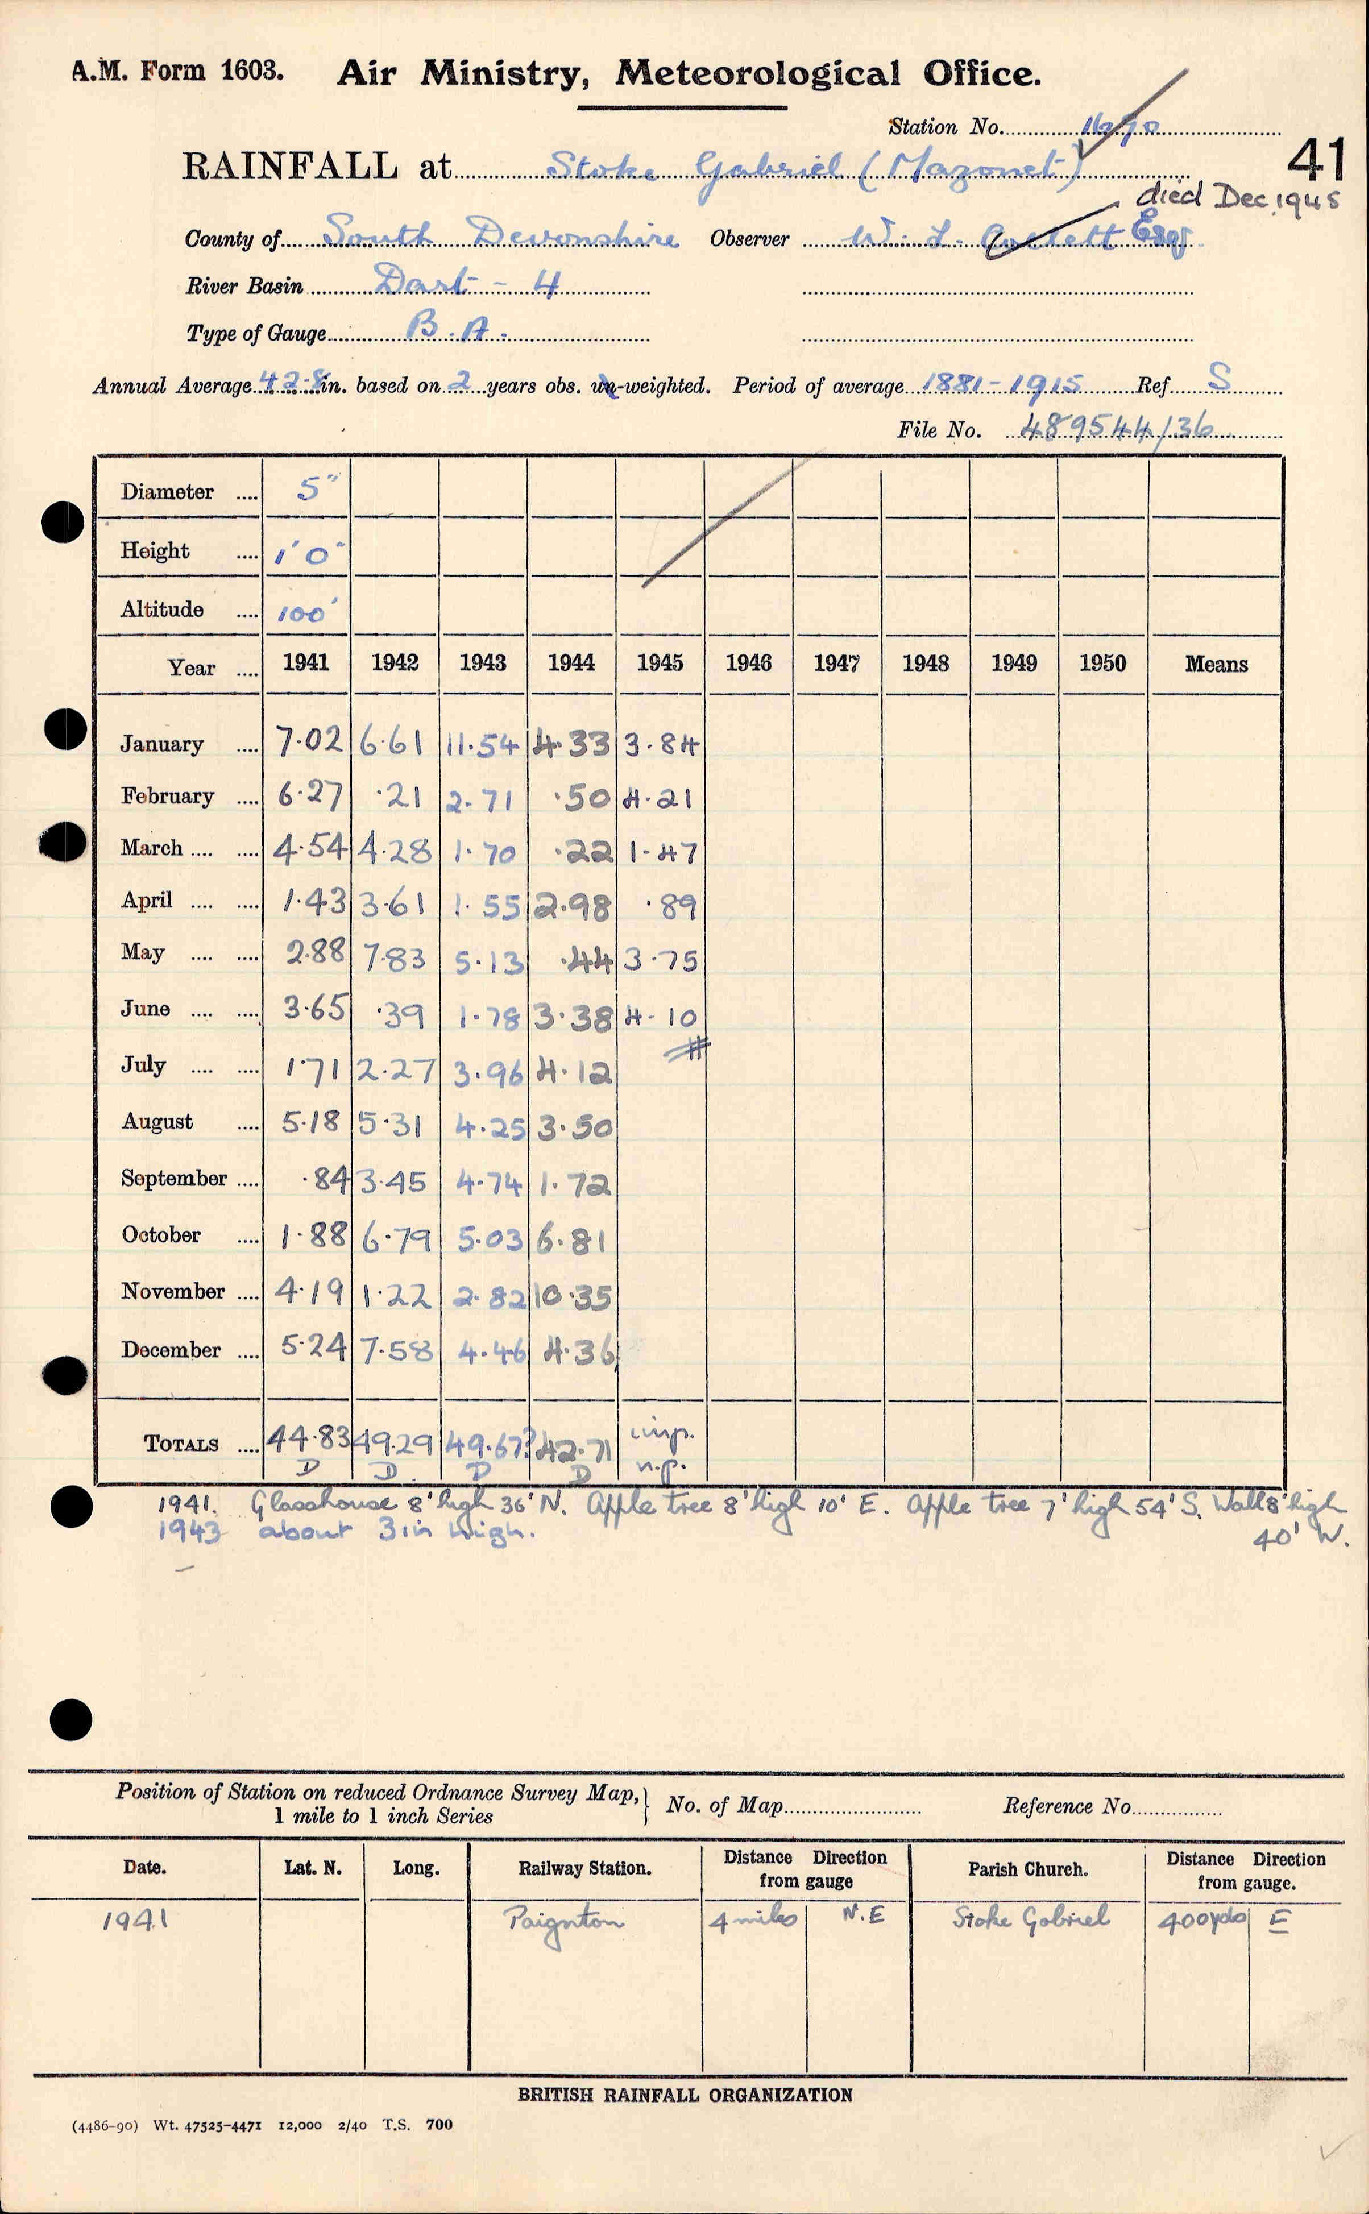 A.M. Form 1603. Air Ministry, Meteorological Office.
Station No.
RAINFALL at Stoke Gabriel (Mazonet) 41
died Dec. 1945
County of South Devonshire Observer W. L. Collett Esq.
River Basin Dart - 4
Type of Gauge B.A.
Annual Average 42.8 in. based on 2 years obs. un-weighted. Period of average 1881-1915 Ref. S
File No. 489544/36
Diameter .... 5"
Height .... 1'0"
Altitude .... 100'
Year .... 1941 1942 1943 1944 1945 1946 1947 1948 1949 1950 Means
January .... 7.02 6.61 11.54 4.33 3.84
February .... 6.27 .21 2.71 .50 4.21
March .... .... 4.54 4.28 1.70 .22 1.47
April .... .... 1.43 3.61 1.55 2.98 .89
May .... .... 2.88 7.83 5.13 .44 3.75
June .... .... 3.65 .39 1.78 3.38 4.10
July .... .... 1.71 2.27 3.96 4.12
August .... 5.18 5.31 4.25 3.50
September .... .84 3.45 4.74 1.72
October .... 1.88 6.79 5.03 6.81
November .... 4.19 1.22 2.82 10.35
December .... 5.24 7.58 4.46 4.36
TOTALS .... 44.83 49.29 49.67? 42.71 imp.
D D. D D n.p.
1941. Glasshouse 8' high 36' N. Apple tree 8' high 10' E. Apple tree 7' high 54' S. Wall 8' high
40' W.
1943 about 3in high.
Position of Station on reduced Ordnance Survey Map,
1 mile to 1 inch Series } No. of Map Reference No.
Date. Lat. N. Long. Railway Station. Distance Direction from gauge Parish Church. Distance Direction from gauge.
1941 Paignton 4 miles N.E Stoke Gabriel 400yds E
BRITISH RAINFALL ORGANIZATION
(4486-90) Wt. 47525-4471 12,000 2/40 T.S. 700